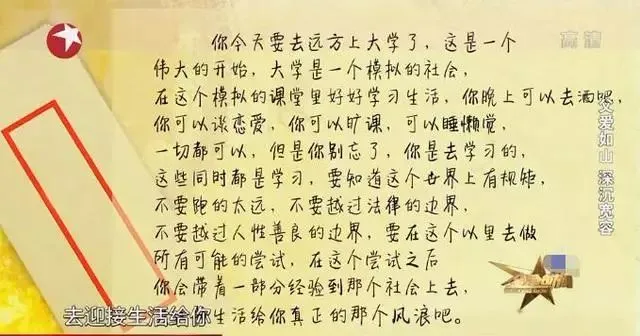 高清
你今天要去远方上大学了，这是一个
伟大的开始，大学是一个模拟的社会，
在这个模拟的课堂里好好学习生活，你晚上可以去酒吧，
你可以谈恋爱，你可以旷课，可以睡懒觉，
一切都可以，但是你别忘了，你是去学习的，
这些同时都是学习，要知道这个世界上有规矩，
不要跑的太远，不要越过法律的边界，
不要越过人性善良的边界，要在这个以里去做
所有可能的尝试，在这个尝试之后
你会带着一部分经验到那个社会上去，
你生活给你真正的那个风浪吧。
父爱如山 深沉宽容
去迎接生活给你